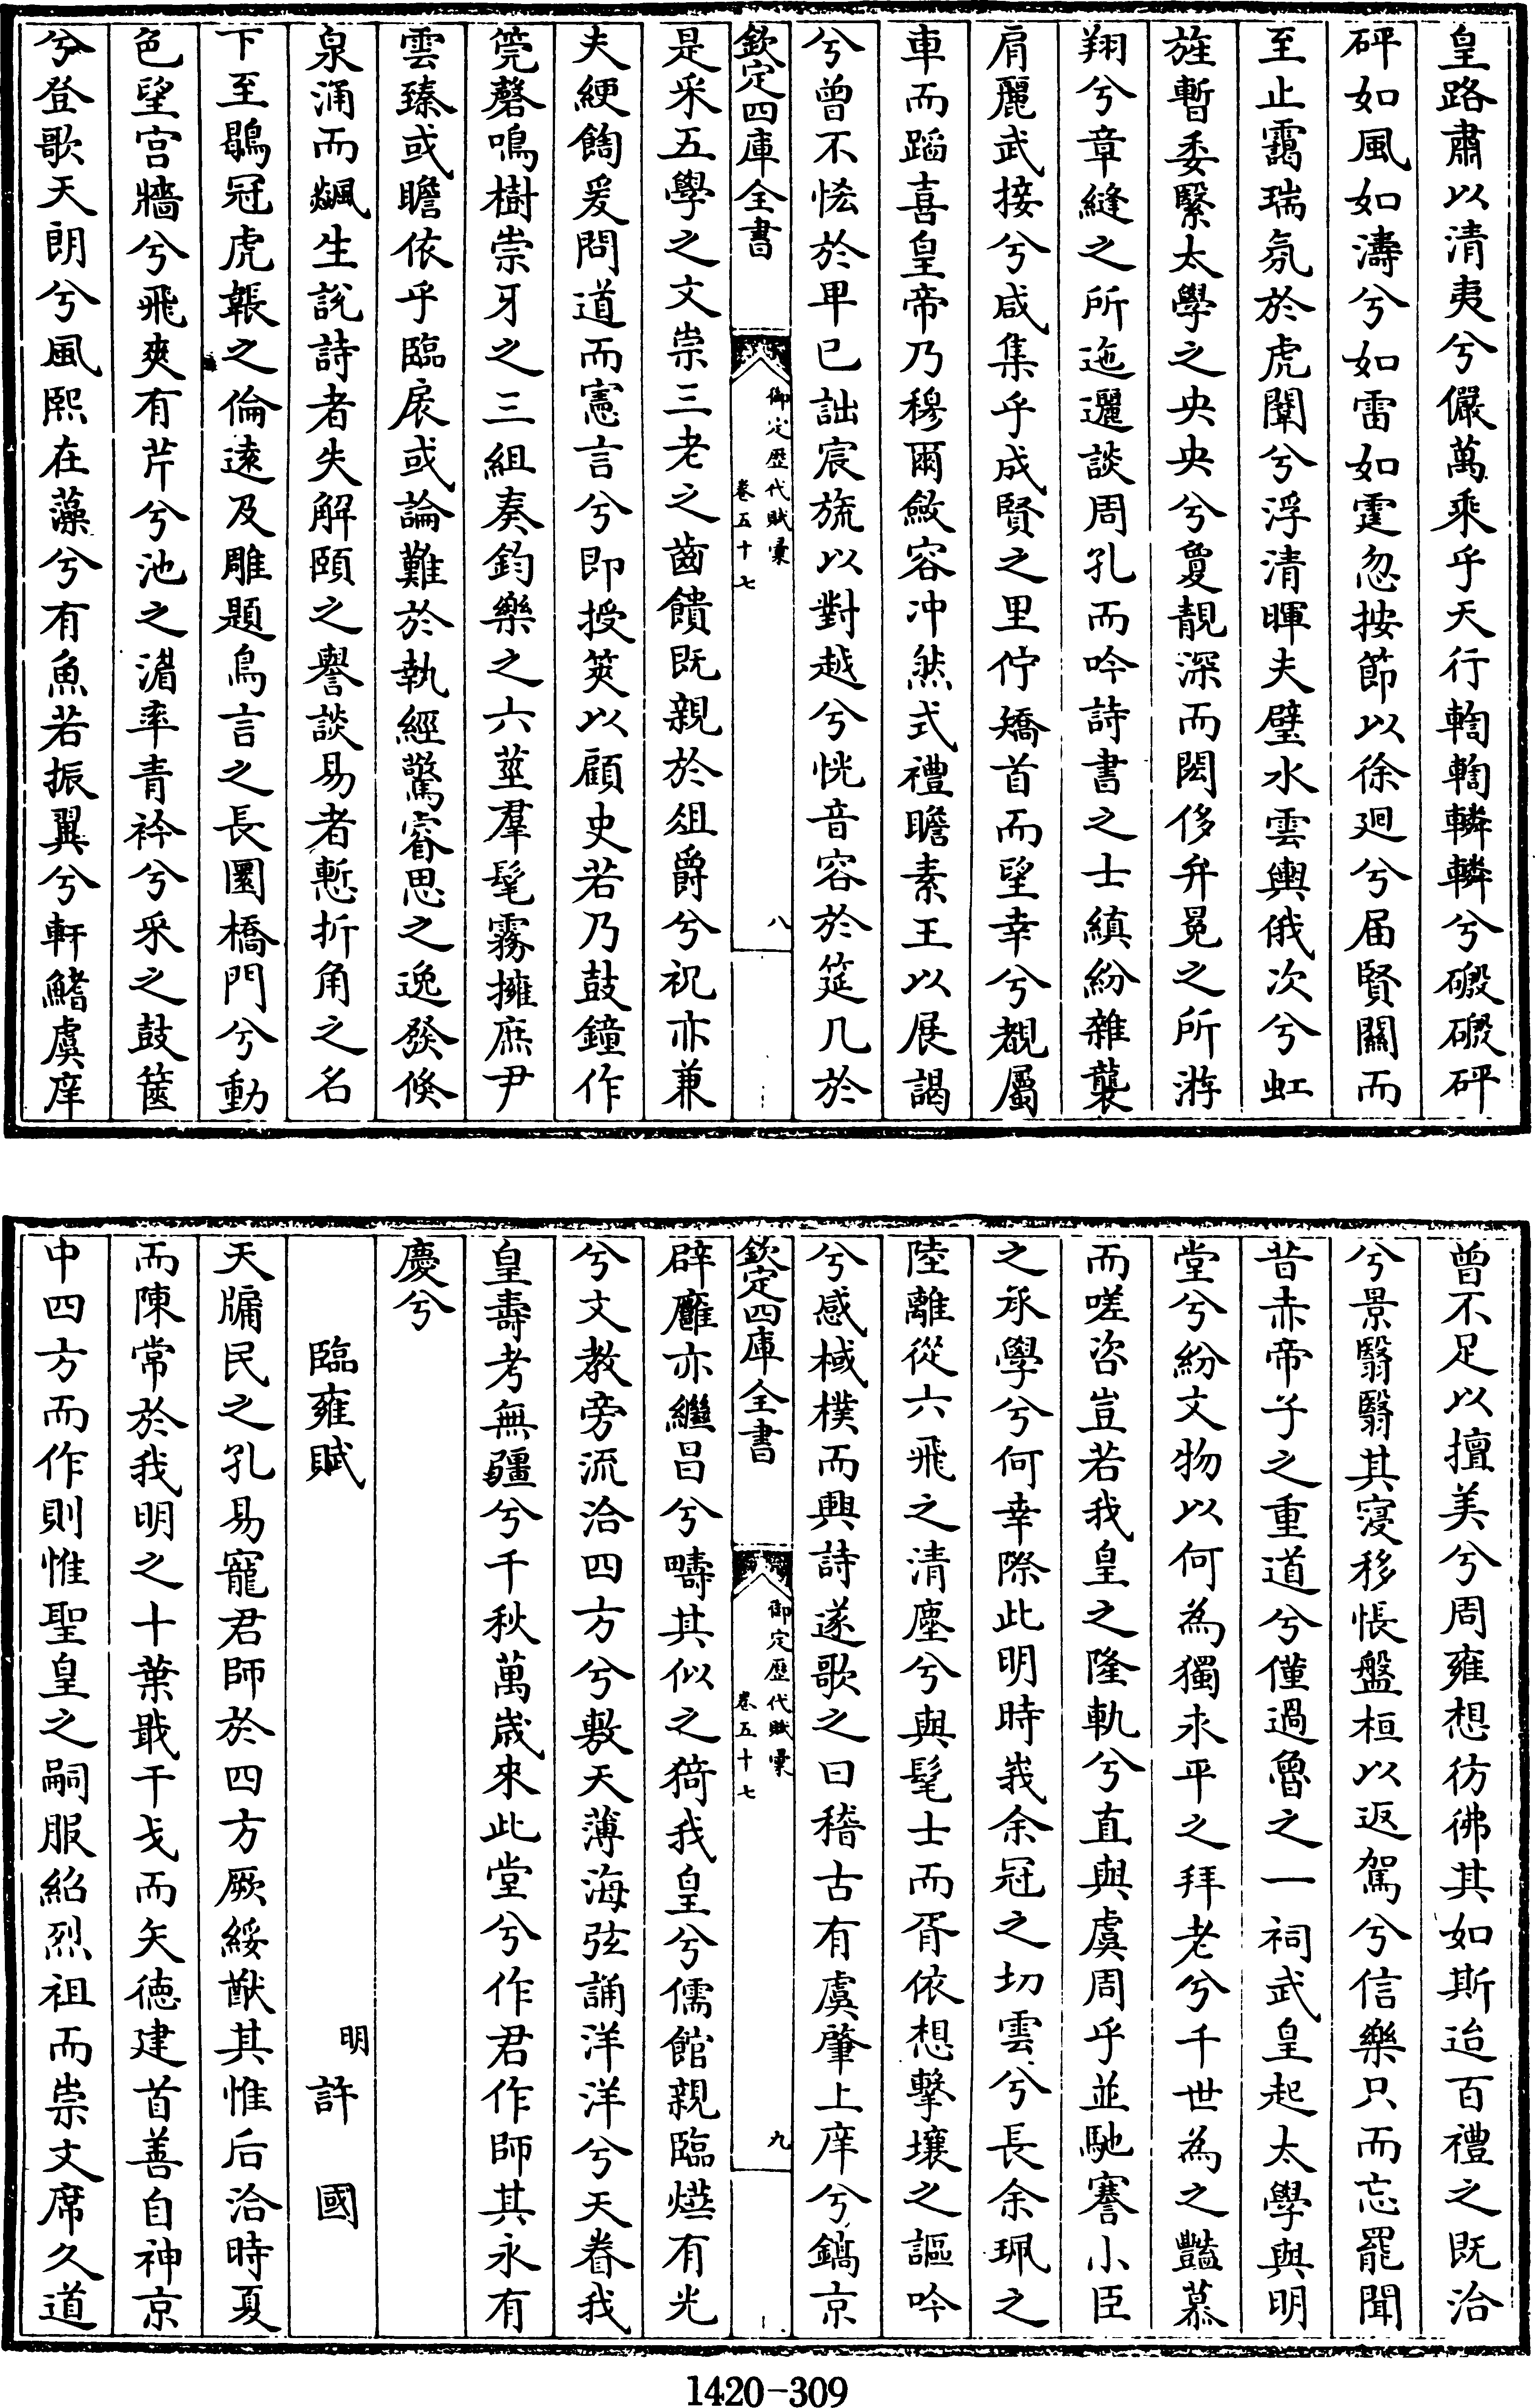 皇路肅以清夷兮儼萬乘乎天行輷輷轔轔兮磤磤砰
砰如風如濤兮如雷如霆忽按節以徐廻兮届賢關而
至止靄瑞氛於虎闈兮浮清暉夫璧水雲輿俄次兮虹
旌暫委繄太學之央央兮敻靚深而閎侈弁冕之所游
翔兮章縫之所迤邐談周孔而吟詩書之士縝紛雜襲
肩麗武接兮咸集乎成賢之里佇矯首而望幸兮覩屬
車而蹈喜皇帝乃穆爾斂容沖然式禮瞻素王以展謁
兮曾不恡於甲已詘宸旒以對越兮恍音容於筵几於
欽定四庫全書
御定歷代賦彚
卷五十七
八
是采五學之文崇三老之齒饋既親於俎爵兮祝亦兼
夫綆餶爰問道而憲言兮即授筴以顧史若乃鼓鐘作
筦磬鳴樹崇牙之三組奏鈞樂之六莖羣髦霧擁庶尹
雲臻或瞻依乎臨扆或論難於執經驚睿思之逸發倏
泉涌而飆生說詩者失解頤之譽談易者慙折角之名
下至鶡冠虎韔之倫遠及雕題鳥言之長圜橋門兮動
色望宫牆兮飛爽有芹兮池之湄率青衿兮采之鼓篋
兮登歌天朗兮風熙在藻兮有魚若振翼兮軒鰭虞庠
曾不足以擅美兮周雍想彷彿其如斯迨百禮之既洽
兮景翳翳其寖移悵盤桓以返駕兮信樂只而忘罷聞
昔赤帝子之重道兮僅過魯之一祠武皇起太學與明
堂兮紛文物以何為獨永平之拜老兮千世為之豔慕
而嗟咨豈若我皇之隆軌兮直與虞周乎並馳謇小臣
之承學兮何幸際此明時峩余冠之切雲兮長余珮之
陸離從六飛之清塵兮與髦士而胥依想擊壤之謳吟
兮感棫樸而興詩遂歌之曰稽古有虞肇上庠兮鎬京
欽定四庫全書
御定歷代賦彚
卷五十七
九
辟廱亦繼昌兮疇其似之猗我皇兮儒館親臨爀有光
兮文教旁流洽四方兮敷天薄海弦誦洋洋兮天眷我
皇壽考無疆兮千秋萬歲來此堂兮作君作師其永有
慶兮
臨雍賦
明 許國
天牖民之孔易寵君師於四方厥綏猷其惟后洽時夏
而陳常於我明之十葉戢干戈而矢德建首善自神京
中四方而作則惟聖皇之嗣服紹烈祖而崇文席久道
1420-309